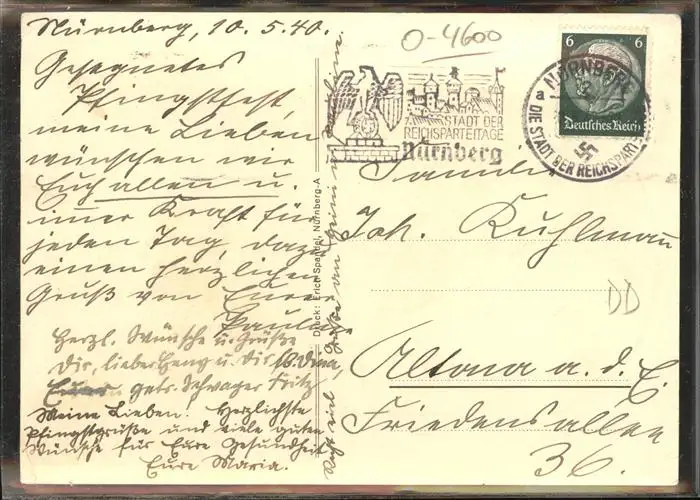 Nürnberg, 10.5.40.
Gesegnetes
Pfingstfest,
meine Lieben
wünschen wir
Euch allen u.
immer Kraft für
jeden Tag, dazu
einen herzlichen
Gruß von Eurer
Paula.
Herzl. Wünsche u. Grüße
Dir, lieber u. Dir,
getr. Schwager Fritz
Meine Lieben! Herzlichste
Pfingstgrüße und viele guten
Wünsche für Eure Gesundheit
Eure Maria.
Recht viel Grüße an
Druck: Erich Spandel, Nürnberg-A
0-4600
STADT DER
REICHSPARTEITAGE
Nürnberg
6 6
Deutsches Reich
NÜRNBERG
a
DIE STADT DER REICHSPARTEI
Familie
Joh. Kuhlmann
DD
Altona a. d. E.
Friedensallee
36.